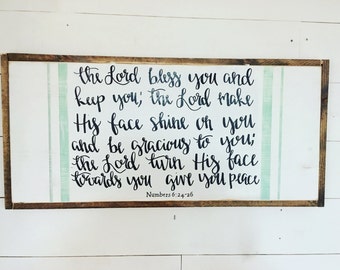 the Lord bless you and
keep you; the Lord make
His face shine on you
and be gracious to you;
the Lord turn His face
towards you give you peace
Numbers 6:24-26